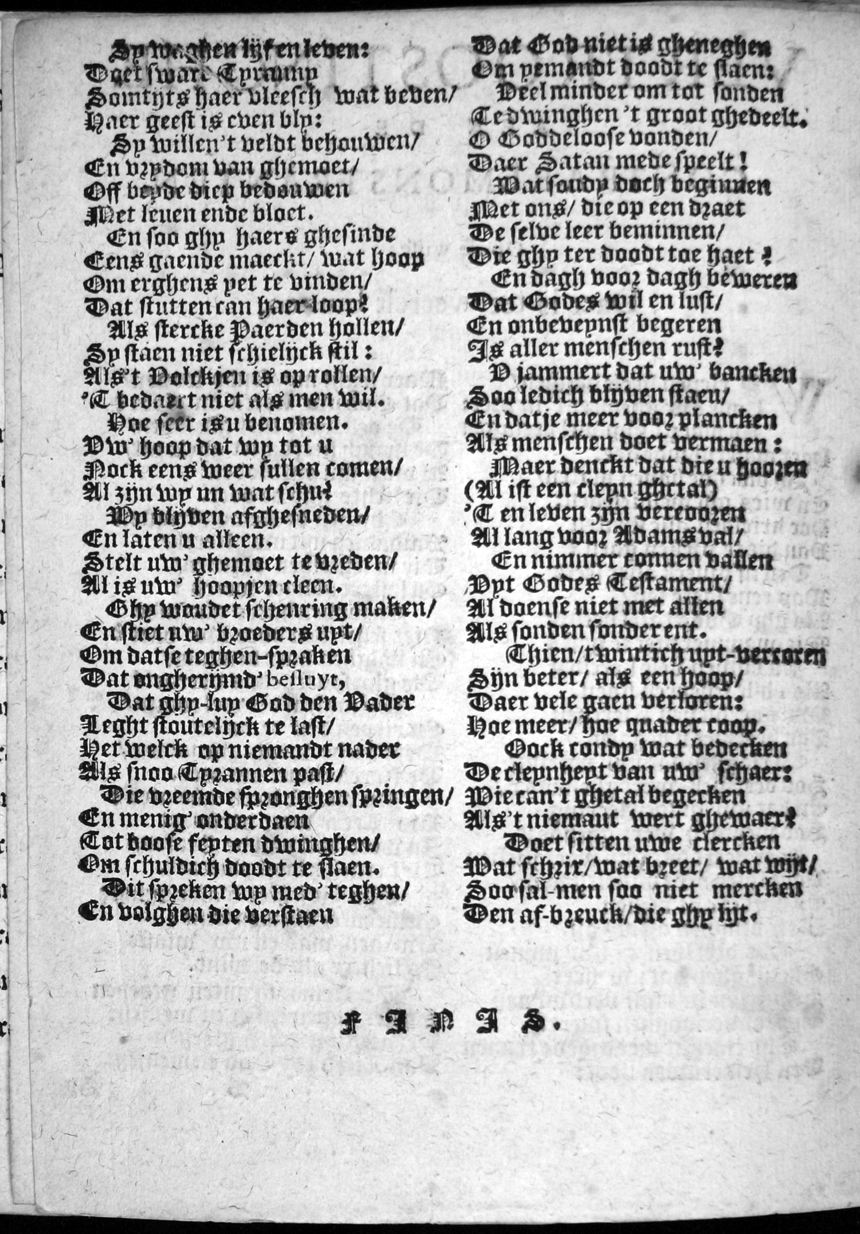 Sy waghen lijf en leven:
Doet sware Tyranny
Somtijts haer vleesch wat beven/
Haer geest is even bly:
Sy willen 't veldt behouwen/
En vrydom van ghemoet/
Off beyde diep bedouwen
Met leven ende bloet.
En soo ghy haers ghesinde
Eens gaende maeckt/ wat hoop
Om erghens yet te vinden/
Dat stutten can haer loop?
Als stercke Paerden hollen/
Sy staen niet schielijck stil:
Als 't Volckjen is op rollen/
'T bedaert niet als men wil.
Hoe seer is u benomen.
Vw' hoop dat wy tot u
Nock eens weer sullen comen/
Al zijn wy un wat schu?
Wy blijven afghesneden/
En laten u alleen.
Stelt uw' ghemoet te vreden/
Al is uw' hoopjen cleen.
Ghy woudet scheuring maken/
En stiet uw' broeders uyt/
Om datse teghen-spraken
Dat ongherijmd' besluyt,
Dat ghy-luy God den Vader
Leght stoutelijck te last/
Het welck op niemandt nader
Als snoo Tyrannen past/
Die vreemde spronghen springen/
En menig' onderdaen
Tot boose feyten dwinghen/
Om schuldich doodt te slaen.
Dit spreken wy med' teghen/
En volghen die verstaen
Dat God niet is gheneghen
Om yemandt doodt te slaen:
Veel minder om tot sonden
Te dwinghen 't groot ghedeelt.
O Goddeloose vonden/
Daer Satan mede speelt!
Wat soudy doch beginnen
Met ons/ die op een draet
De selve leer beminnen/
Die ghy ter doodt toe haet?
En dagh voor dagh beweren
Dat Godes wil en lust/
En onbeveynst begeren
Is aller menschen rust?
V jammert dat uw' bancken
Soo ledich blijven staen/
En datje meer voor plancken
Als menschen doet vermaen:
Maer denckt dat die u hooren
(Al ist een cleyn ghetal)
'T en leven zijn vercooren
Al lang voor Adams val/
En nimmer connen vallen
Vyt Godes Testament/
Al doense niet met allen
Als sonden sonder ent.
Thien/ twintich uyt-vercoren
Sijn beter/ als een hoop/
Daer vele gaen verloren:
Hoe meer/ hoe quader coop.
Oock condy wat bedecken
De cleynheyt van uw' schaer:
Wie can 't ghetal begecken
Als 't niemant wert ghewaer?
Doet sitten uwe clercken
Wat schrix/ wat breet/ wat wijt/
Soo sal-men soo niet mercken
Den af-breuck/ die ghy lijt.
FINIS.